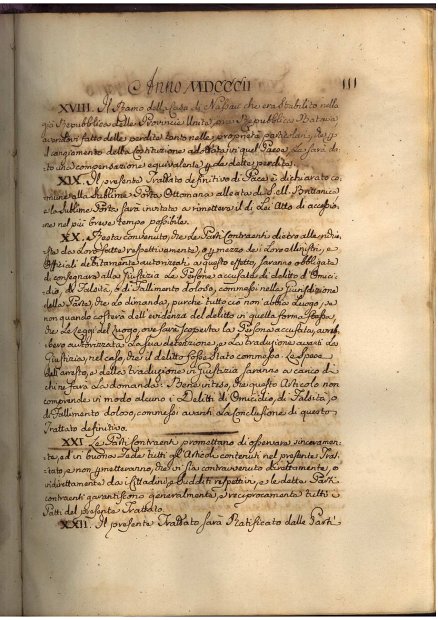 Anno MDCCCII
111
XVIII. Il Ramo della Casa di Nassau che era stabilito nella
già Repubblica delle Provincie Unite, ora Repubblica Batava
avendo fatto delle perdite tanto nelle proprietà particolari,
il cangiamento della Costituzione adottata in quel Paese, Le sarà da
to una compensazione equivalente p. da dette perdite.
XIX. Il presente Trattato definitivo di Pace è dichiarato co
mune alla Sublime Porta Ottomana alleata di S. M. Britanica
e la Sublime Porta sarà invitata a rimettere il di Lei Atto di accessio
ne nel più breve tempo possibile.
XX. È stato convenuto, che Le Parti Contraenti dietro alle
ste da Loro fatte respettivamente, o p. mezzo de i Loro Ministri, e
Officiali debitamente autorizzati a questo effetto, saranno obbligate
di consegnare alla Giustizia Le Persone accusate di delitto d'Omici
dio, di Falsità, o di Fallimento doloso, commessi nella Giurisdizione
della Parte, che Lo dimanda, purchè tutto ciò non abbia Luogo, se
non quando costerà dell'evidenza del delitto in quella forma stessa,
che Le Leggi del Luogo, ove sarà scoperta La Persona accusata, avreb
bero autorizzata La sua detenzione, e La traduzione avanti La
Giustizia, nel caso, che il delitto fosse stato commesso. Le Spese
dell'arresto, e della traduzione in Giustizia saranno a carico di
chi ne farà La domanda: Bene inteso, che questo Articolo non
comprende in modo alcuno i Delitti di Omicidio, di Falsità, o
di Fallimento doloso, commessi avanti La Conclusione di questo
Trattato definitivo.
XXI. Le Parti Contraenti promettano di osservare sinceramen
te, ed in buona Fede tutti gli Articoli contenuti nel presente Trat
tato, e non permetteranno, che vi sia contravvenuto direttamente, o
indirettamente da i Cittadini, e Sudditi respettivi, e le dette Parti
contraenti garantiscono generalmente, e reciprocamente tutti i
Patti del presente Trattato.
XXII. Il presente Trattato sarà Ratificato dalle Parti